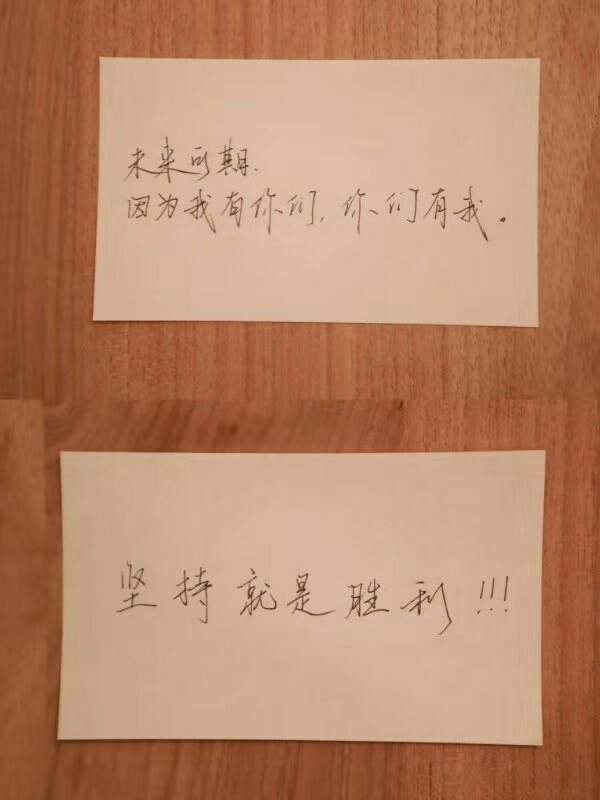 未来可期.
因为我有你们，你们有我。
坚持就是胜利!!!